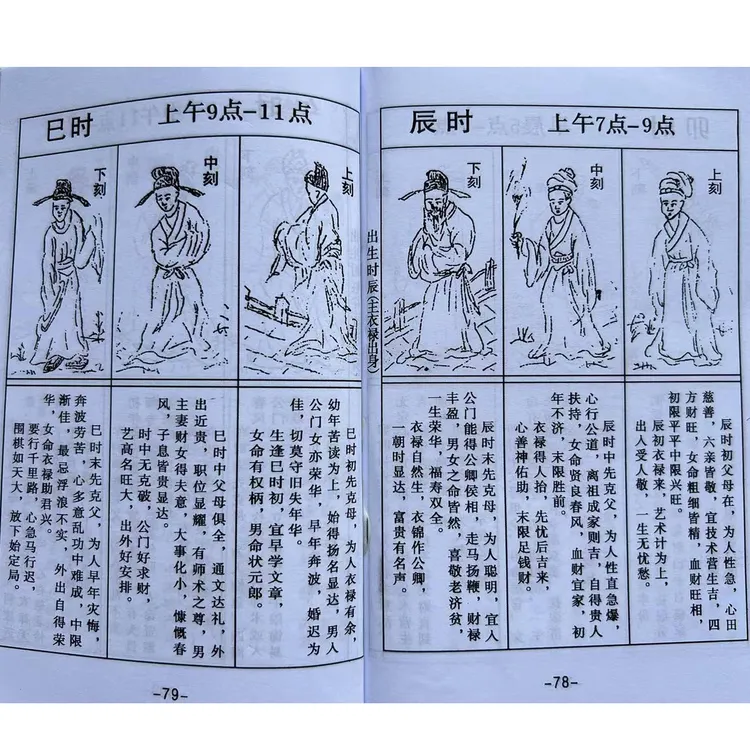 辰时 上午7点-9点
上刻
中刻
下刻
辰时初父母在，为人性急，心田
慈善，六亲皆敬，宜技术营生吉，四
方财旺，女命粗细皆精，血财旺相，
初限平平中限兴旺。
辰初衣禄来，艺术计为上，
出入受人敬，一生无忧愁。
辰时中先克父，为人性直急爆，
心行公道，离祖成家则吉，自得贵人
扶持，女命贤良春风，血财宜家，初
年不济，末限胜前。
衣禄得人抬，先忧后吉来，
心善神佑助，末限足钱财。
辰时末先克母，为人聪明，宜人
公门能得公卿侯相，走马扬鞭，财禄
丰盈，男女之命皆然，喜敬老济贫，
一生荣华，福寿双全。
衣禄自然生，衣锦作公卿，
一朝时显达，富贵有名声。
出生时辰(主衣禄出身)
-78-
巳时 上午9点-11点
上刻
中刻
下刻
巳时初先克母，为人衣禄有余，
幼年苦读为上，始得扬名显达，男人
公门女亦荣华，早年奔波，婚迟为
佳，切莫守旧失年华。
生逢巳时初，宜早学文章，
女命有权柄，男命状元郎。
巳时中父母俱全，通文达礼，外
出近贵，职位显耀，有师术之尊，男
主妻财女得夫意，大事化小，慷慨春
风，子息皆贵显达。
时中无克破，公门好求财，
艺高名旺大，出外好安排。
巳时末先克父，为人早年灾悔，
奔波劳苦，心多意乱功中难成，中限
渐佳，最忌浮浪不实，外出自得荣
华，女命衣禄助君兴。
要行千里路，心急马行迟，
围棋如天大，放下始定局。
-79-